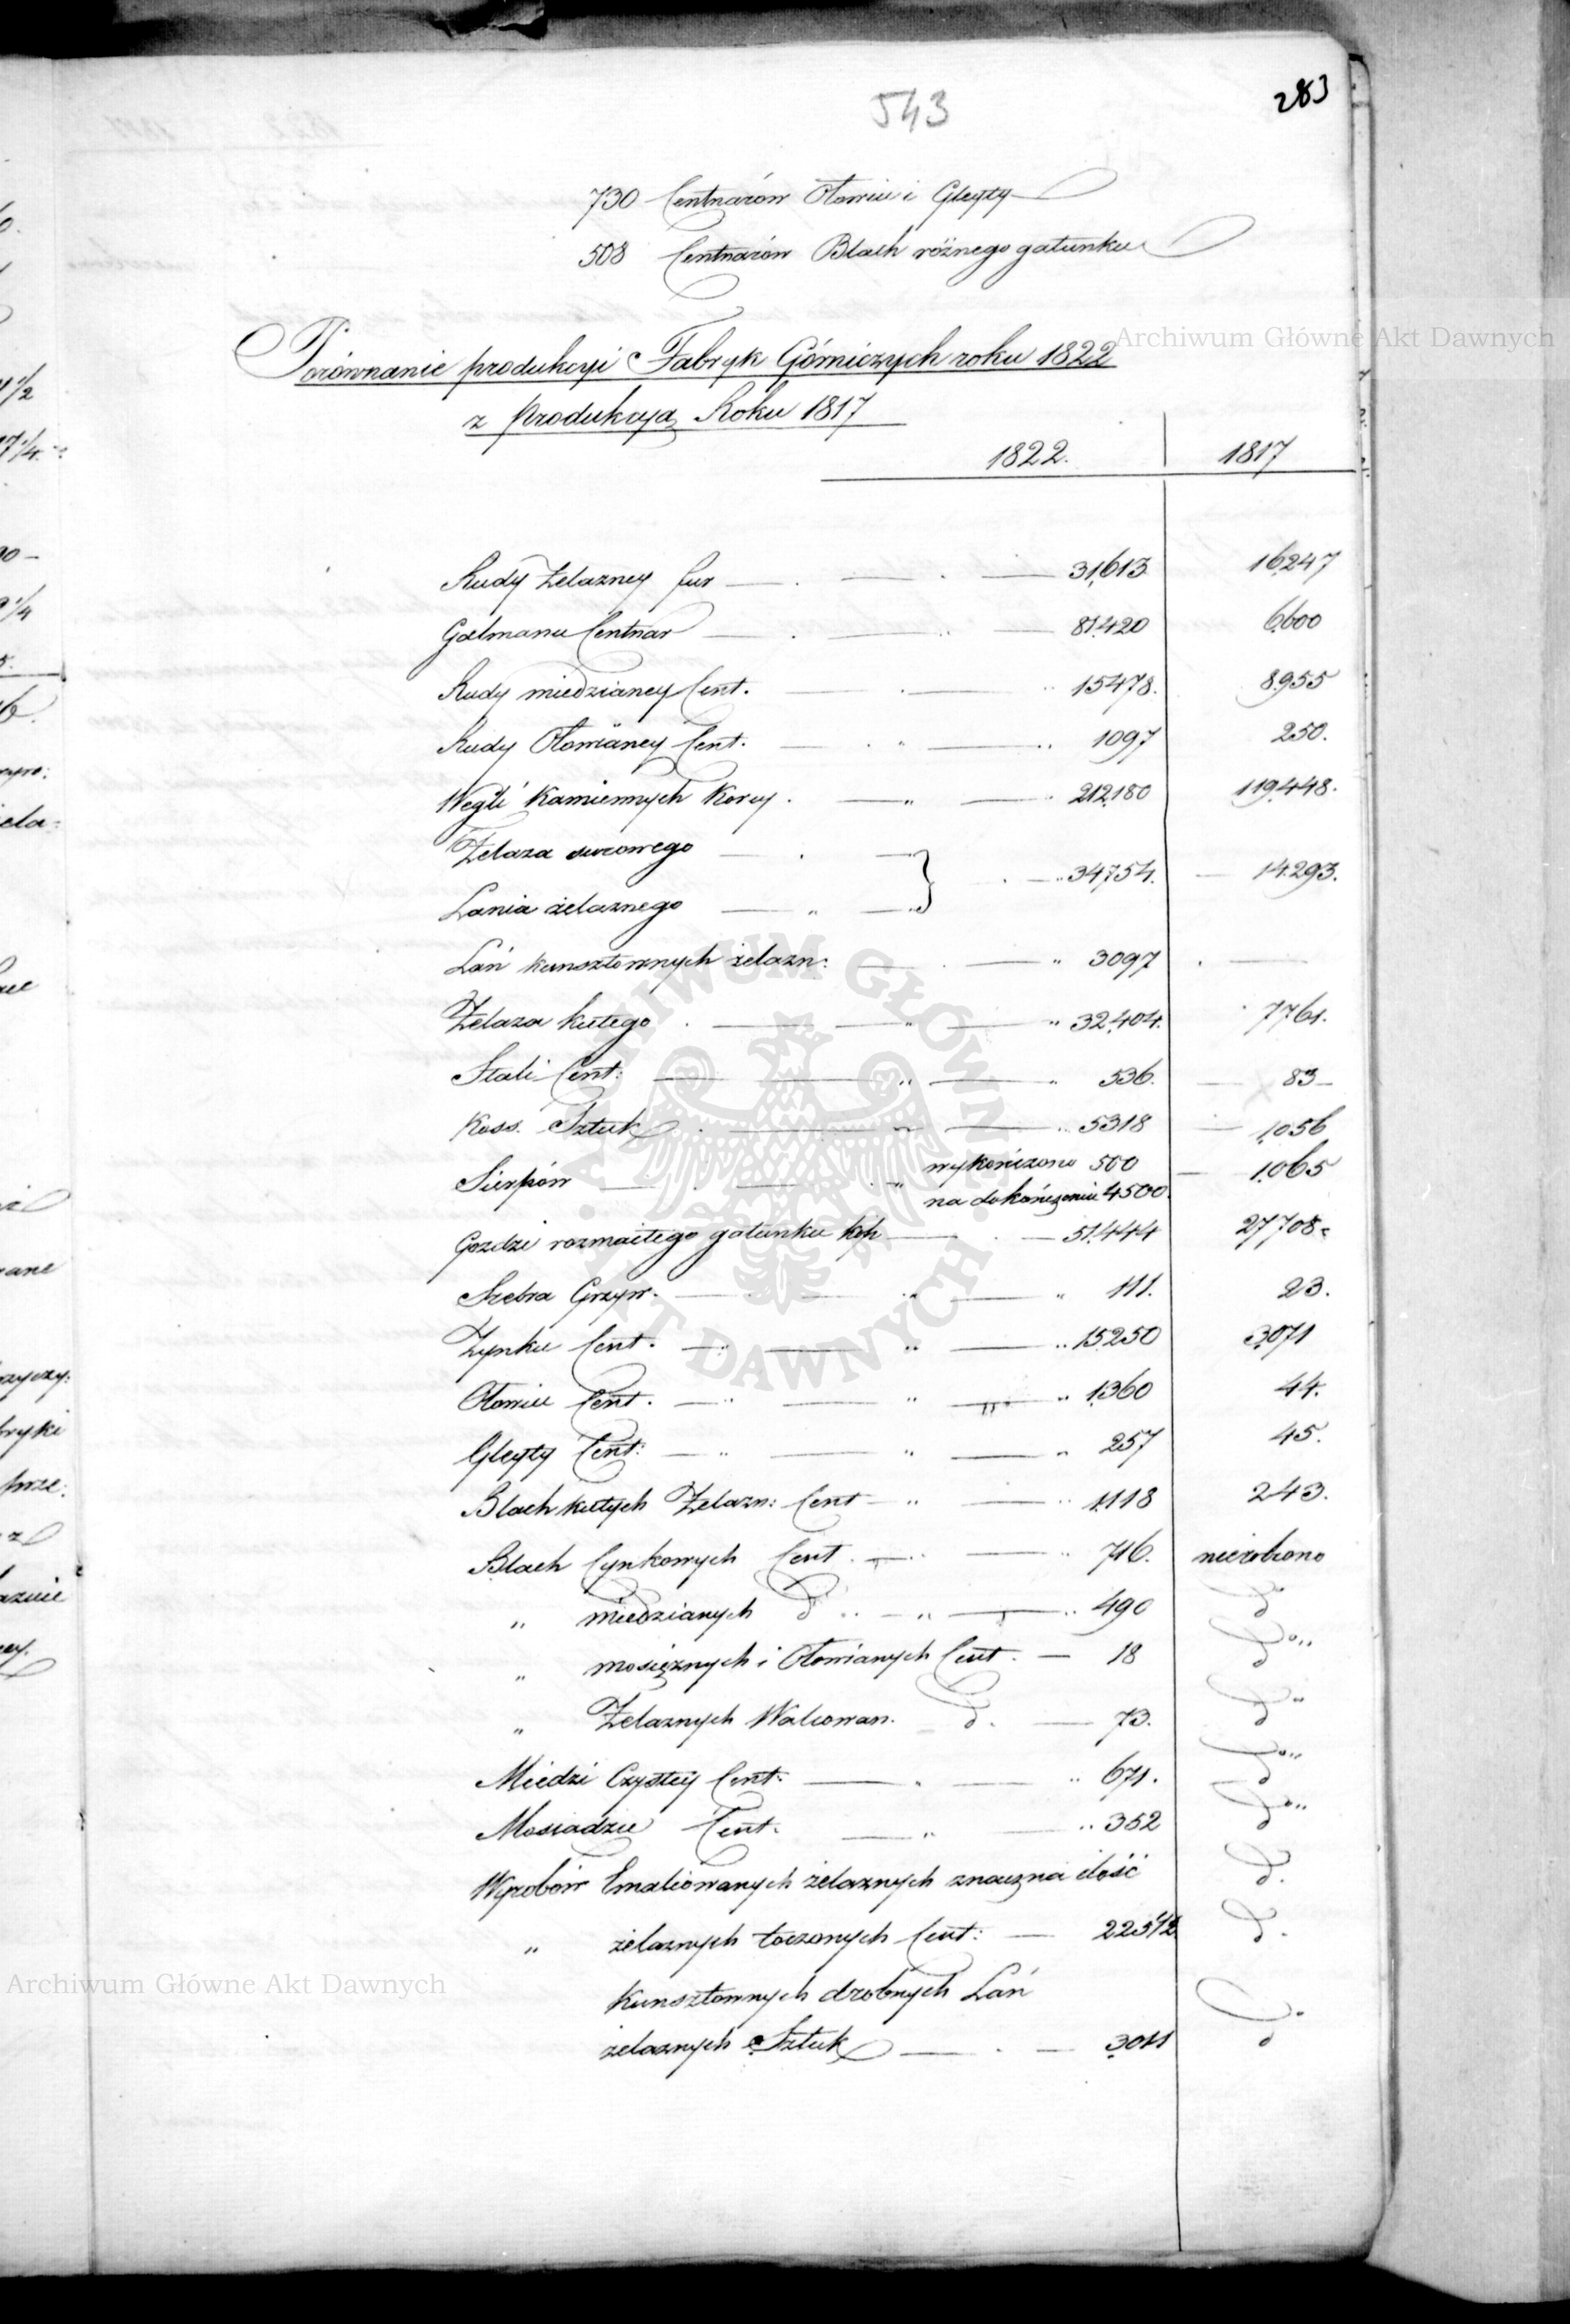 543
283
730 Centnarów Ołowiu i Gleyty
508 Centnarów Blach różnego gatunku
Porównanie produkcyi Fabryk Górniczych roku 1822
z produkcyą Roku 1817
1822. 1817
Rudy żelazney fur 31,613 16,247
Galmanu Centnar 81,420 6,600
Rudy miedzianey Cent. 15478. 8,955
Rudy Ołowianey Cent. 1097 250.
Węgli Kamiennych Korcy 212,180 119,448.
Żelaza surowego
Lania żelaznego 34754. 14,293.
Lań kunsztownych żelazn: 3097 —
Żelaza kutego 32,404. 7761.
Stali Cent: 536. 83
Koss. Sztuk 5318 1,056
Sierpów wykończono 500 1,065
na dokończeniu 4500.
Gozdzi rozmaitego gatunku kop 51,444 27,708
Srebra Grzyw. 111. 23.
Zynku Cent. 15250 3,071
Ołowiu Cent. 1,360 44.
Gleyty Cent: 257 45.
Blach kutych Żelazn: Cent 1,118 243.
Blach Cynkowych Cent. 716. nierobiono
" miedzianych do 490 do
" mosiężnych i Ołowianych Cent. 18 do
" Żelaznych Walcowan. do. 73. do
Miedzi Czystey Cent: 671. do
Mosiadzu Cent. 352 do
Wyrobów Emaliowanych żelaznych znaczna ilość do.
" żelaznych toczonych Cent: 225 1/2 do.
Kunsztownych drobnych Lań
żelaznych Sztuk 3,011 do
Archiwum Główne Akt Dawnych
Archiwum Główne Akt Dawnych
ARCHIWUM GŁÓWNE AKT DAWNYCH